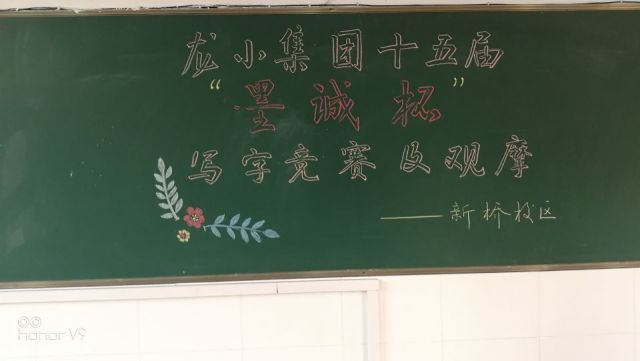 龙小集团十五届
“墨诚杯”
写字竞赛及观摩
——新桥校区
honor V9